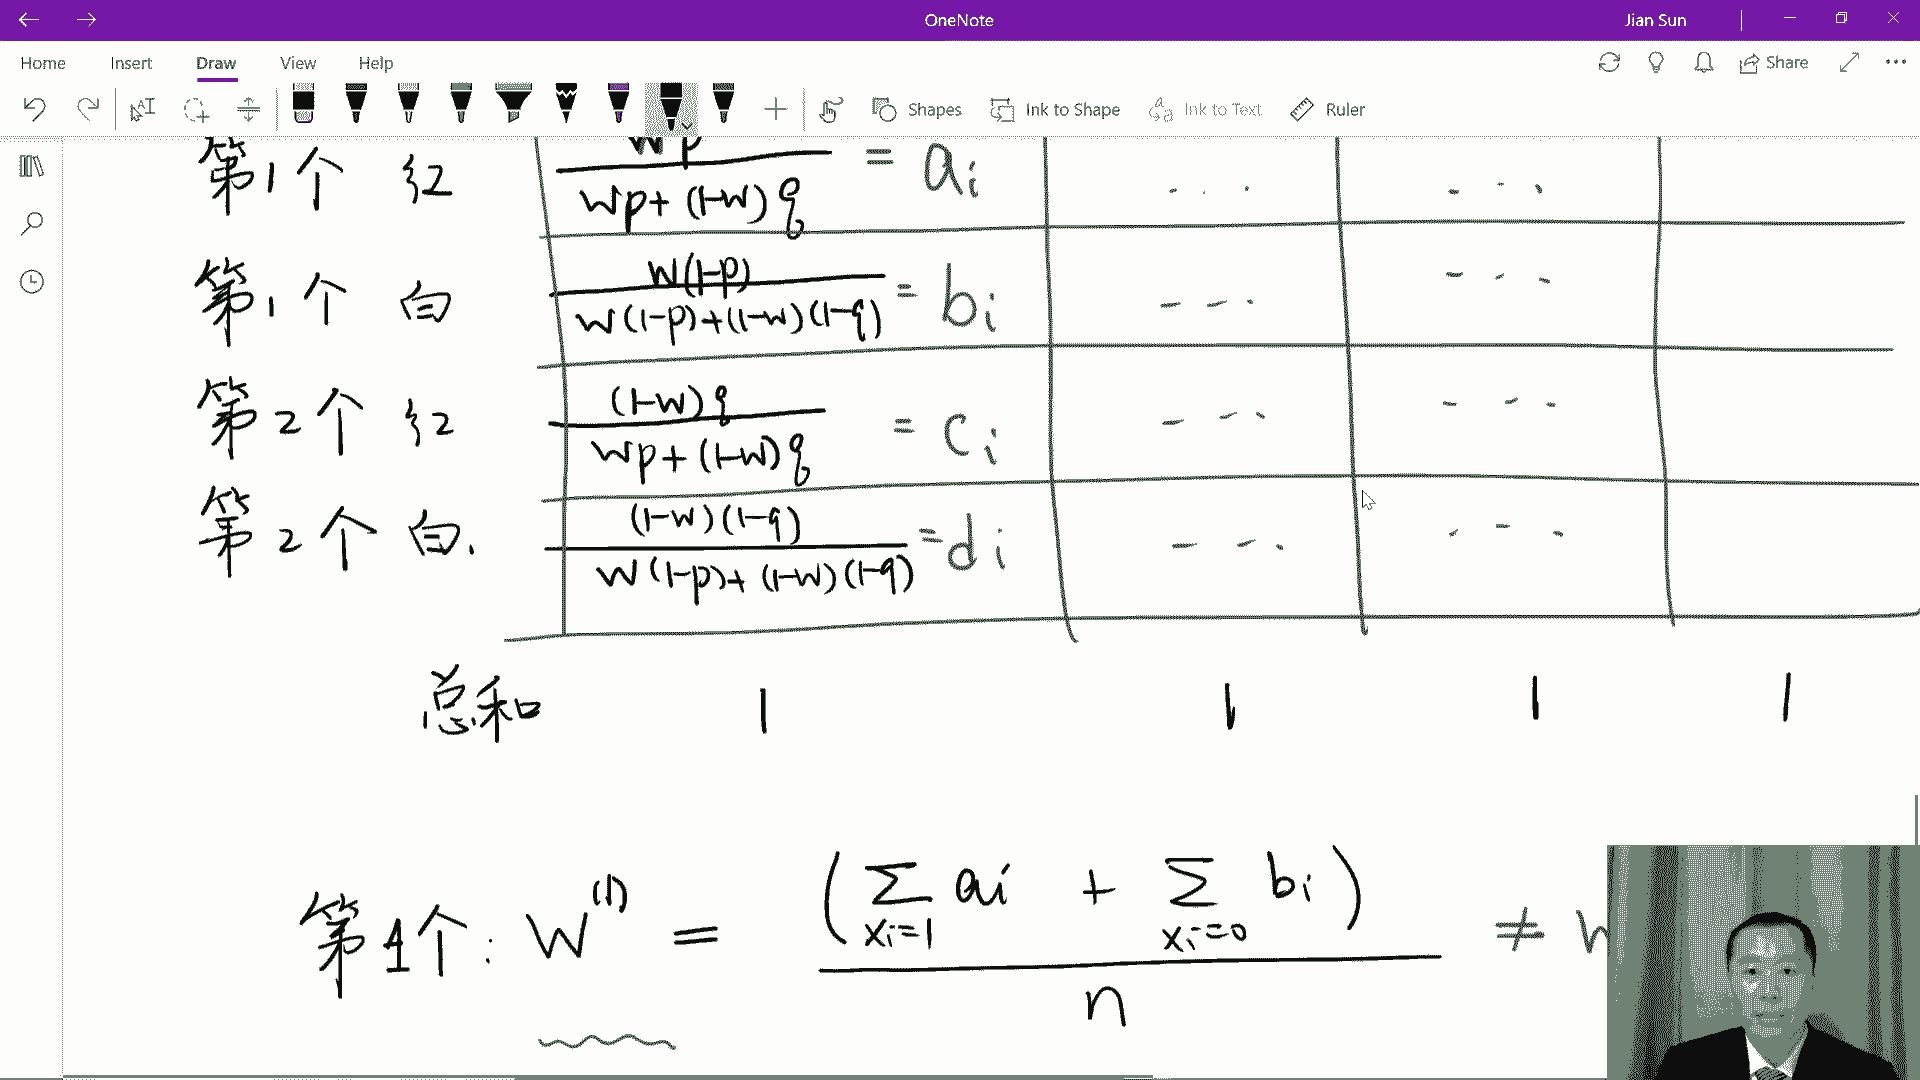 OneNote
Jian Sun
Home Insert Draw View Help
Share
Shapes Ink to Shape Ink to Text Ruler
第1个 红 wp / wp+(1-w)q = ai
第1个 白 w(1-p) / w(1-p)+(1-w)(1-q) = bi
第2个 红 (1-w)q / wp+(1-w)q = ci
第2个 白. (1-w)(1-q) / w(1-p)+(1-w)(1-q) = di
总和 1 1 1 1
第1个: w^(1) = (∑_{xi=1} ai + ∑_{xi=0} bi) / n ≠